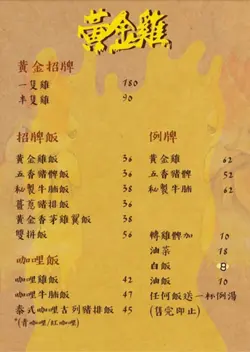 黃金雞
黃金招牌
一隻雞 180
半隻雞 90
招牌飯
黃金雞飯 36
五香豬髀飯 36
秘製牛腩飯 38
薑蔥豬排飯 36
黃金香茅雞翼飯 38
雙拼飯 56
咖哩飯
咖哩雞飯 42
咖哩牛腩飯 47
泰式咖哩吉列豬排飯 45
*(青咖哩/紅咖哩)
例牌
黃金雞 62
五香豬髀 52
秘製牛腩 62
轉雞髀加 10
油菜 18
白飯 8
油飯 10
任何飯送一杯例湯
(售完即止)